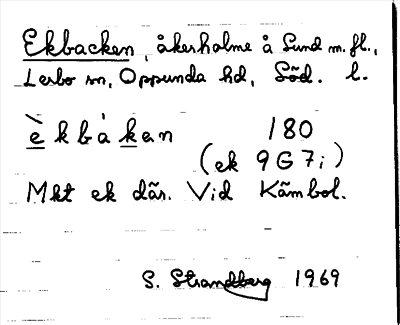 Ekbacken, åkerholme å Sund m.fl.,
Lerbo sn, Oppunda hd, Söd. l.
è̱kbàḵen 180
(ek 9G7i)
Mkt ek där. Vid Kämbol.
S. Strandberg 1969